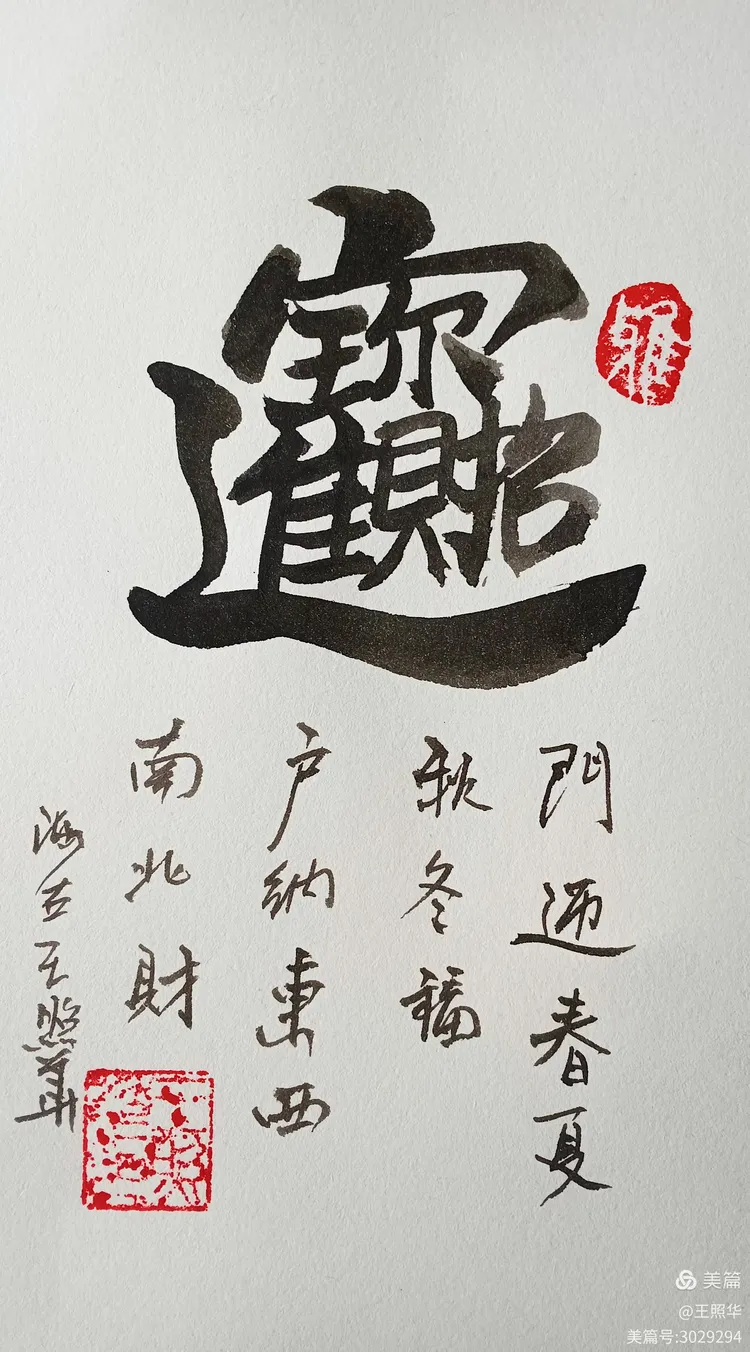 招財進寶
門迎春夏
秋冬福
户納東西
南北財
王照華
美篇
@王照华
美篇号:3029294